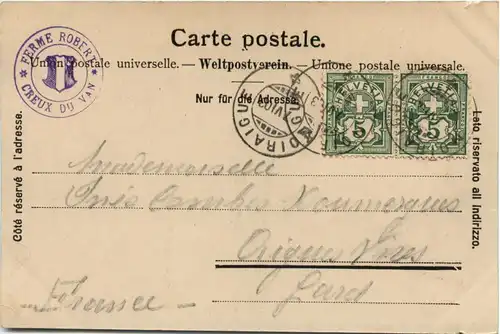 Carte postale.
Union postale universelle. — Weltpostverein. — Unione postale universale.
Nur für die Adresse.
FERME ROBERT
CREUX DU VAN
NOIRAIGUE
HELVETIA
5
HELVETIA
5
Côté réservé à l'adresse.
Lato riservato all indirizzo.
Mademoiselle
Aigues Vives
Gard
France